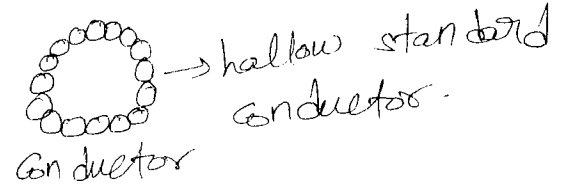 hallow standard
conductor.
conductor